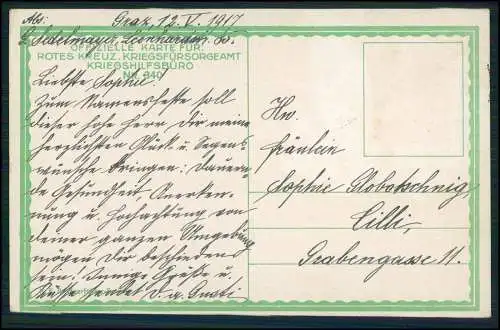 Abs: Graz, 12.V. 1917
Sedelmayer, Leonhardstr.
OFFIZIELLE KARTE FÜR:
ROTES KREUZ, KRIEGSFÜRSORGEAMT
KRIEGSHILFSBÜRO
NR. 840
Liebste Sophie!
Zum Namensfeste soll
dieser hohe Herr Dir meine
herzlichsten Glück- u. Segens-
wünsche bringen: Dauern-
de Gesundheit, Anerken-
nung u. Hochachtung von
deiner ganzen Umgebung
mögen Dir beschieden
sein! Innige Grüße u.
Küsse sendet D. a. Gusti
Fräulein
Sophie Globotschnig,
Cilli,
Grabengasse 11.